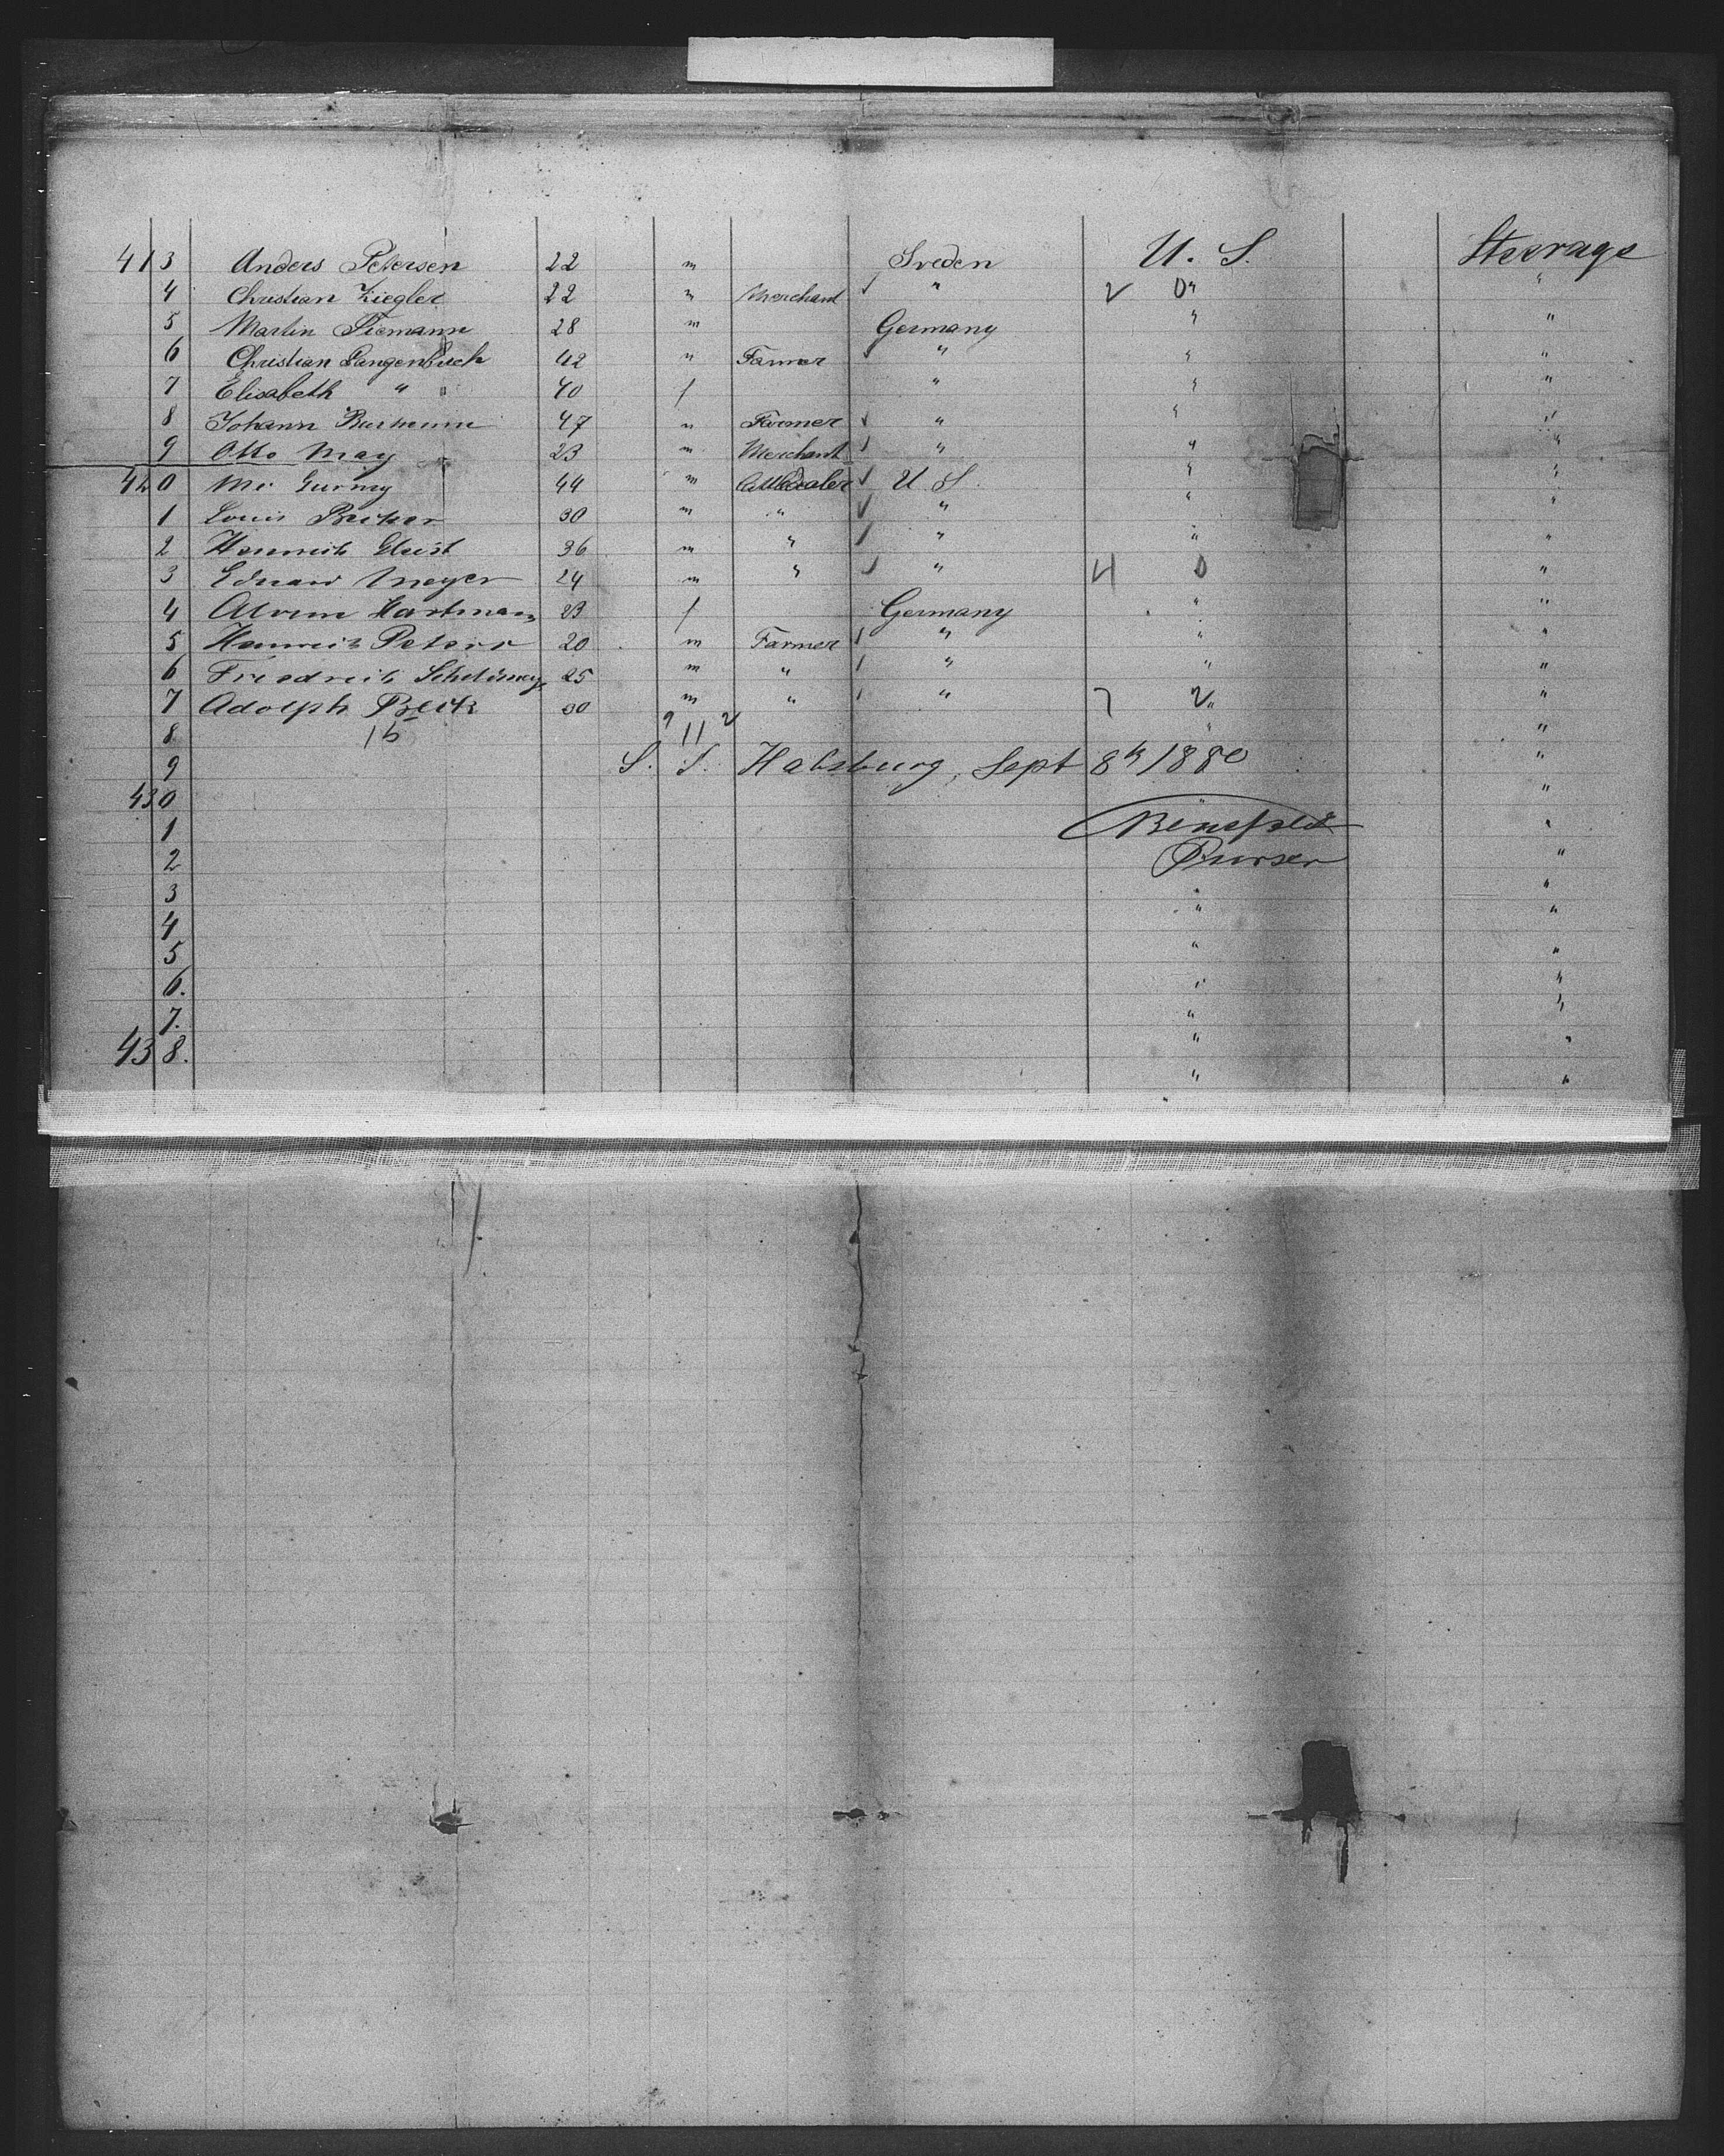 413 Anders Petersen 22 m Sveden U. S. Steerage
4 Christian Ziegler 22 " Merchant ✓ " 2 0 " "
5 Martin Tiemann 28 m Germany " "
6 Christian Langenbuch 42 " Farmer ✓ " " "
7 Elisabeth " 40 f " " "
8 Johann 47 " Farmer ✓ " " "
9 Otto May 23 " Merchant ✓ " " "
420 Mr 44 m ✓ U S. " "
1 Louis 30 m " ✓ " " "
2 Heinrich Geist 36 m " ✓ " " "
3 Eduard Meyer 24 m " ✓ " 4 0 "
4 Hartmann 23 f Germany " "
5 Heinrich Peters 20 m Farmer ✓ " " "
6 Friedrich 25 m " ✓ " " "
7 Adolph Beck 30 m " ✓ " 7 2 " "
8 16 9 11 2 " "
9 S. S. Habsburg, Sept 8th 1880 "
430 "
1 "
2 Purser "
3 " "
4 " "
5 " "
6. " "
7. " "
438. " "
" "